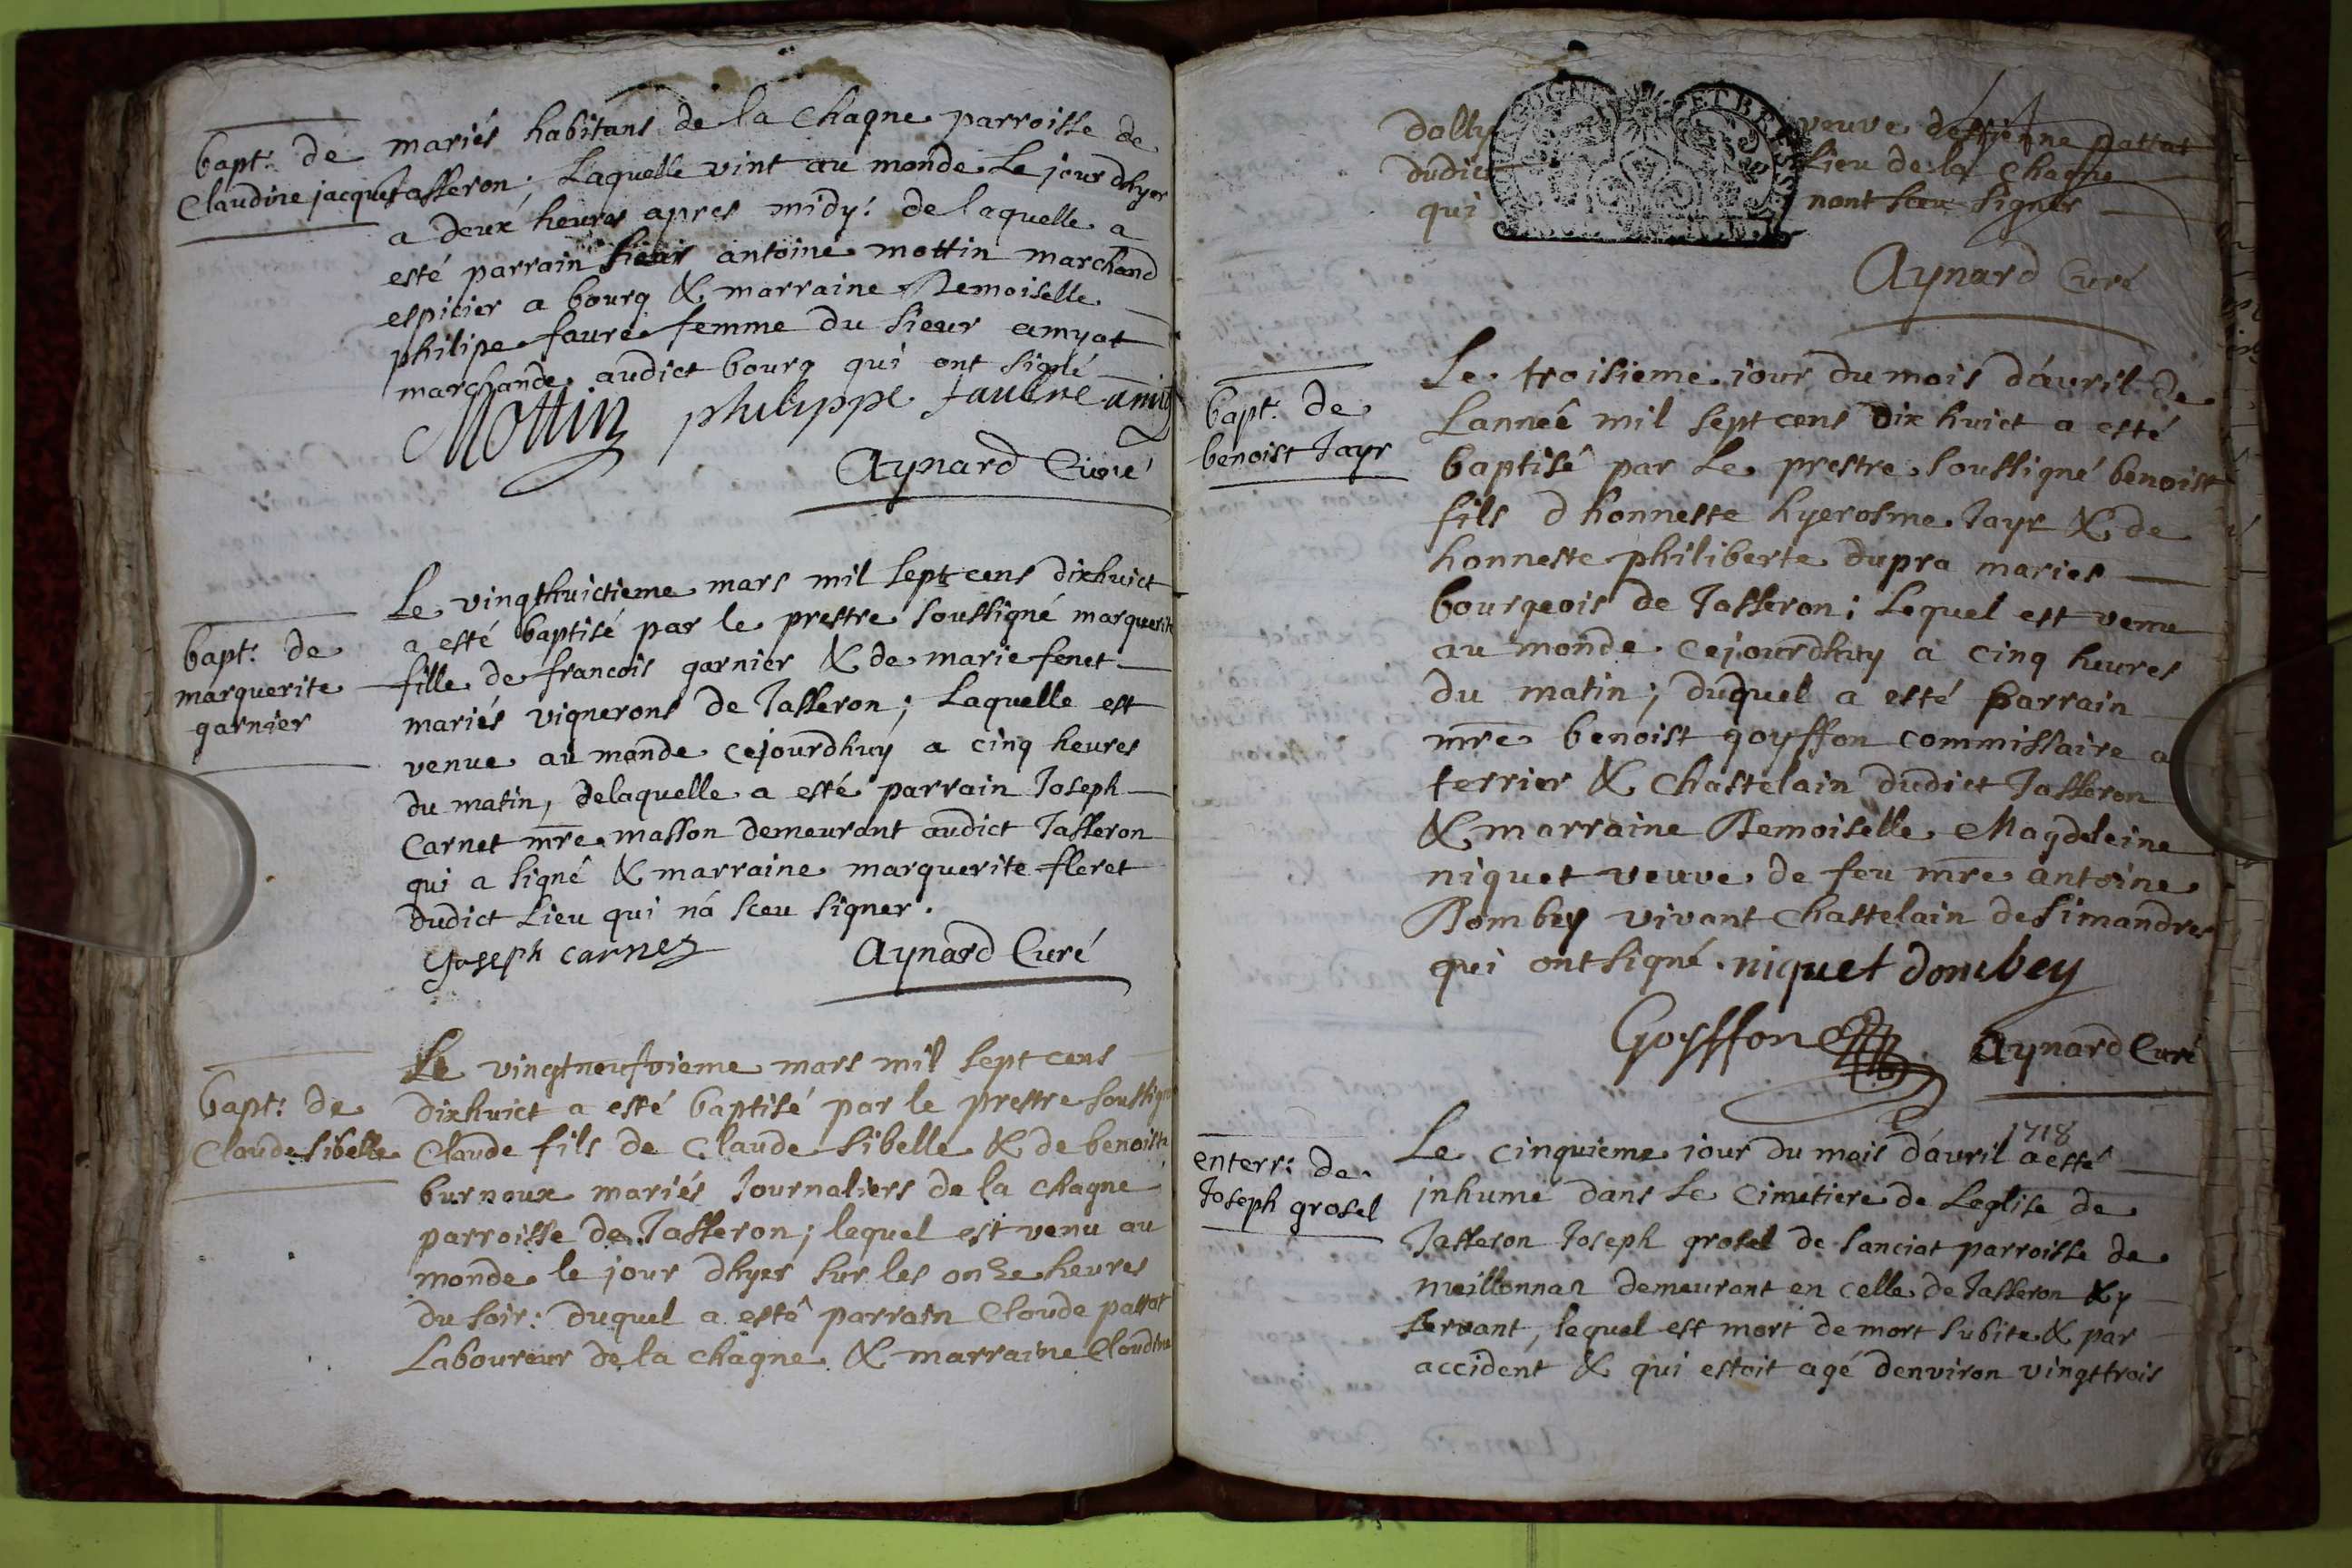 bapt: de
Claudine jacquet
mariés habitans de la Chagne parroisse de
Jasseron; Laquelle vint au monde Le jour dhyer
a deux heures apres midy: de laquelle a
esté parrain sieur antoine mottin marchand
espicier a bourg & marraine Demoiselle
philipe faure femme du sieur amyot
marchande audict bourg qui ont signé
Mottin philippe faulre
Aynard Curé
bapt: de
marguerite
garnier
Le vingthuictieme mars mil sept cens dixhuict
a esté baptisé par le prestre soussigné marguerite
fille de francois garnier & de marie fenet
mariés vignerons de Jasseron; Laquelle est
venue au monde cejourdhuy a cinq heures
du matin, delaquelle a esté parrain Joseph
Carnet mre masson demeurant audict Jasseron
qui a signé & marraine marguerite fleret
dudict Lieu qui n'a sceu signer.
Joseph carnez Aynard Curé
bapt: de
Claude sibelle
Le vingtneufvieme mars mil sept cens
dixhuict a esté baptisé par le prestre soussigné
Claude fils de Claude sibelle & de benoiste
burnoux mariés Journaliers de la chagne
parroisse de Jasseron; lequel est venu au
monde le jour dhyer sur les onze heures
du soir: duquel a esté parrain Claude pattat
Laboureur de la chagne & marraine Claudine
dolly veuve destienne pattat
dudict Lieu de la Chagne
qui nont sceu signer
Aynard Curé
bapt: de
benoist Jayr
Le troisieme jour du mois d'avril de
Lanneê mil sept cens dix huict a esté
baptisé par Le prestre soussigné benoist
fils d honneste hyerosme Jayr & de
honneste philiberte dupra maries
bourgeois de Jasseron; Lequel est venu
au monde cejourdhuy a cinq heures
du matin; duquel a esté parrain
mre benoist goyffon commissaire a
terrier & Chastelain dudict Jasseron
& marraine Demoiselle Magdeleine
niquet veuve de feu mre antoine
Dombey vivant Chastelain de simandres
qui ont signé. niquet dombey
Goyffon Aynard Curé
enterr: de
Joseph grosel
1718
Le cinquieme jour du mois d'avril a esté
jnhumé dans Le Cimetiere de Leglise de
Jasseron Joseph grosel de sanciat parroisse de
meillonnaz demeurant en celle de Jasseron & y
servant, lequel est mort de mort subite & par
accident & qui estoit agé denviron vingttrois